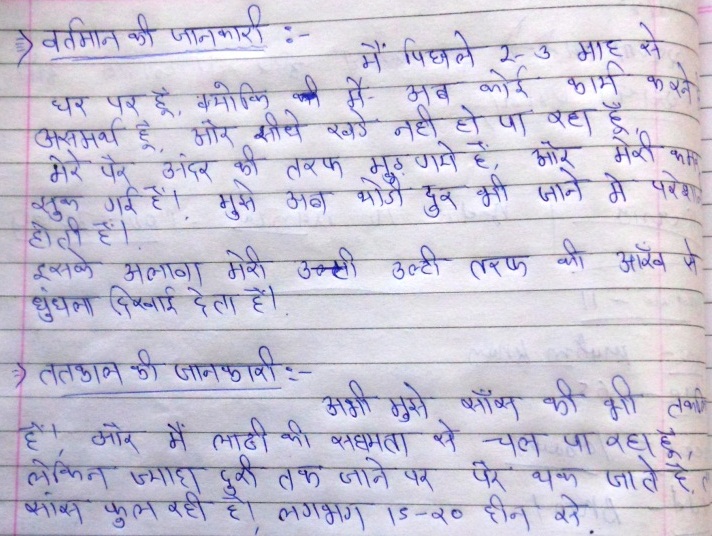 ⇒ वर्तमान की जानकारी :-
मैं पिछले २-३ माह से
घर पर हूँ, क्योकि मैं अब कोई काम करने
असमर्थ हूँ, और सीधे खडे नही हो पा रहा हूँ,
मेरे पैर अंदर की तरफ मुड़ गये हैं, और मेरी कमर
झुक गई हैं। मुझे अब थोडी दुर भी जाने मे परेशान
होती हैं।
इसके अलावा मेरी उल्टी तरफ की आँख से
धुंधला दिखाई देता हैं।
⇒ ततकाल की जानकारी :-
अभी मुझे साँस की भी
हैं। और मैं लाठी की सहामता से चल पा रहा हूँ,
लेकिन ज्यादा दुरी तक जाने पर पैर थक जाते हैं,
सांस फुल रही हैं, लगभग 15-20 दीन से.